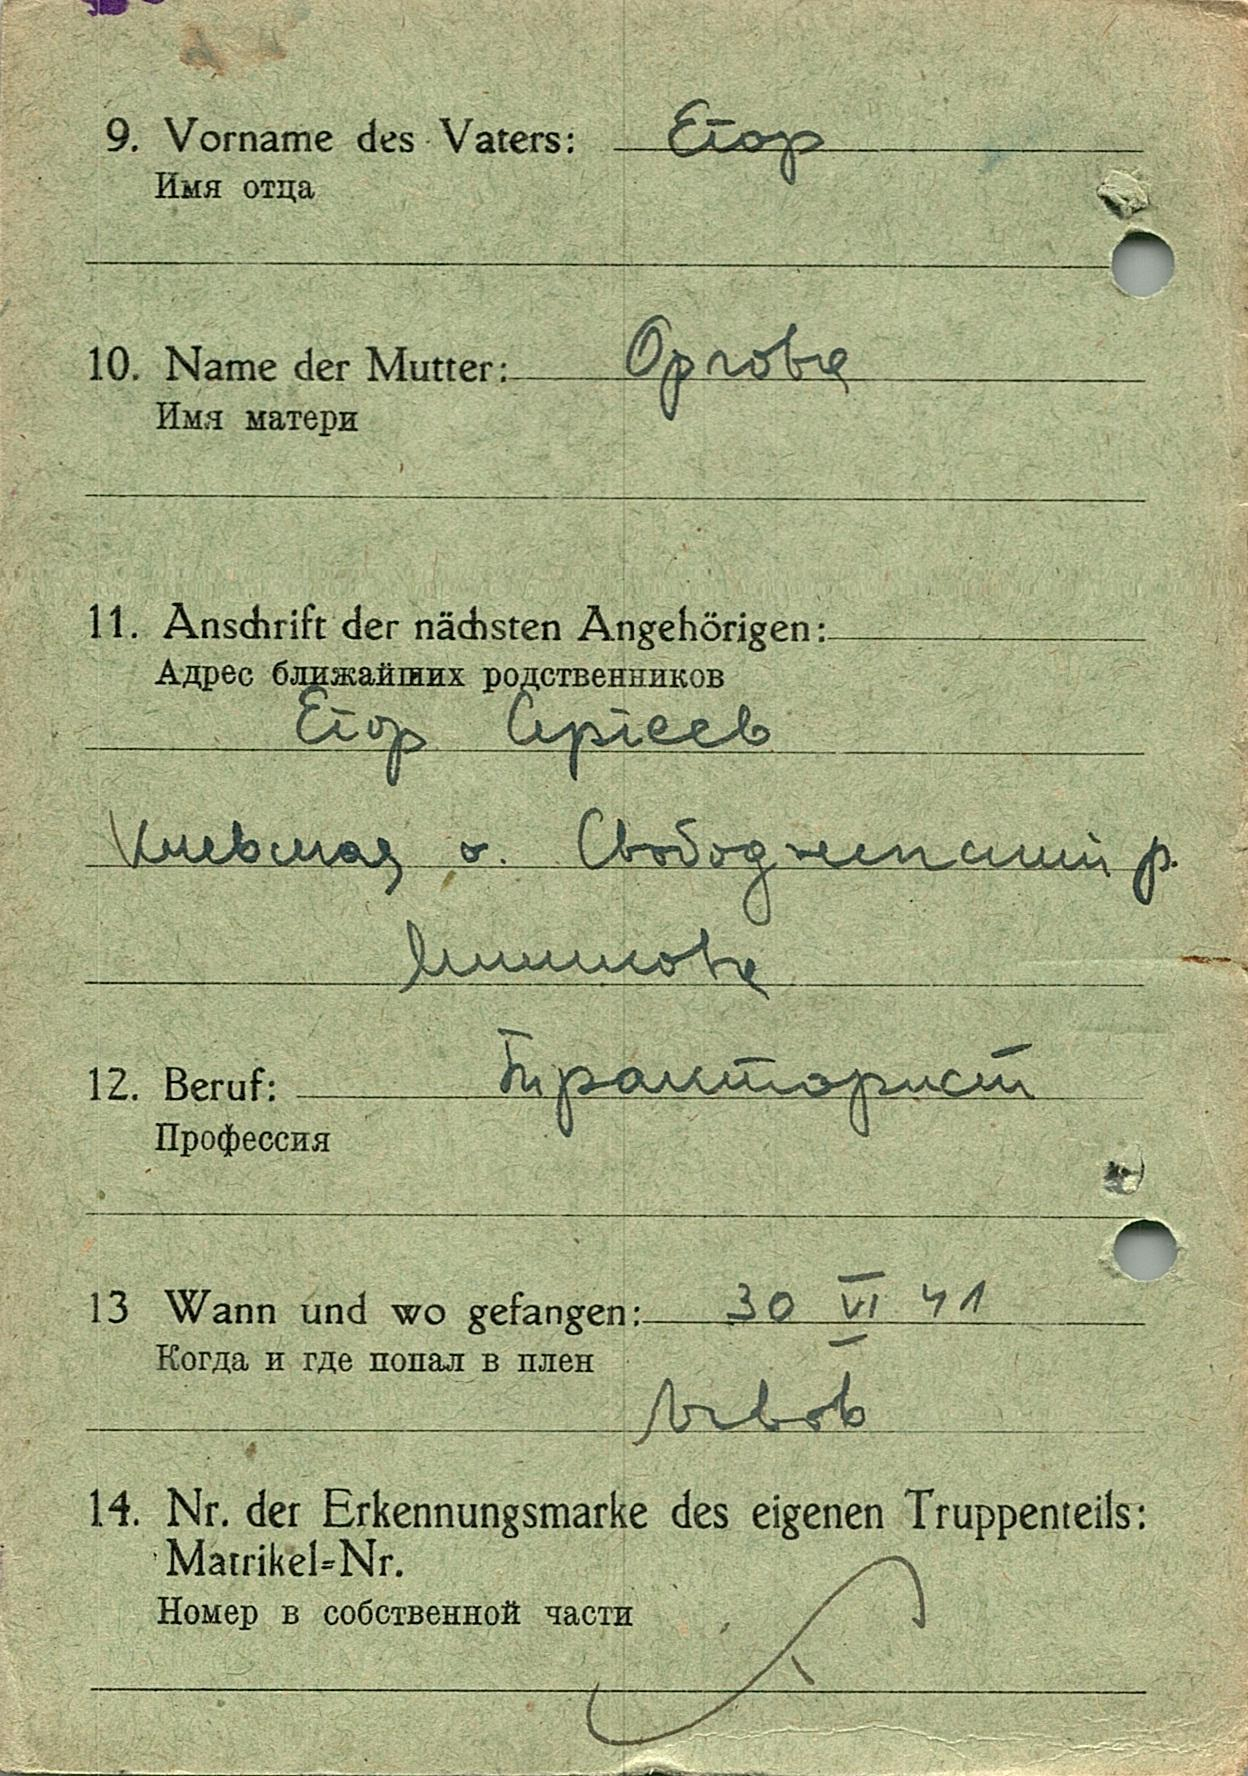 9. Vorname des Vaters: Егор
Имя отца
10. Name der Mutter: Орлова
Имя матери
11. Anschrift der nächsten Angehörigen:
Адрес ближайших родственников
Егор Сергеев
о. р.
12. Beruf: Тракторист
Профессия
13 Wann und wo gefangen: 30 VI 41
Когда и где попал в плен
Львов
14. Nr. der Erkennungsmarke des eigenen Truppenteils:
Matrikel=Nr.
Номер в собственной части